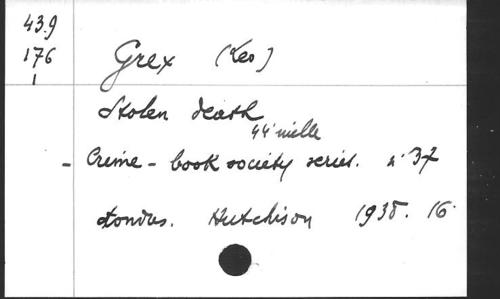 439
176
1
Grex (Leo)
Stolen death
44 mille
- Crime-book society series. n° 37
Londres. Hutchison 1938. 16°